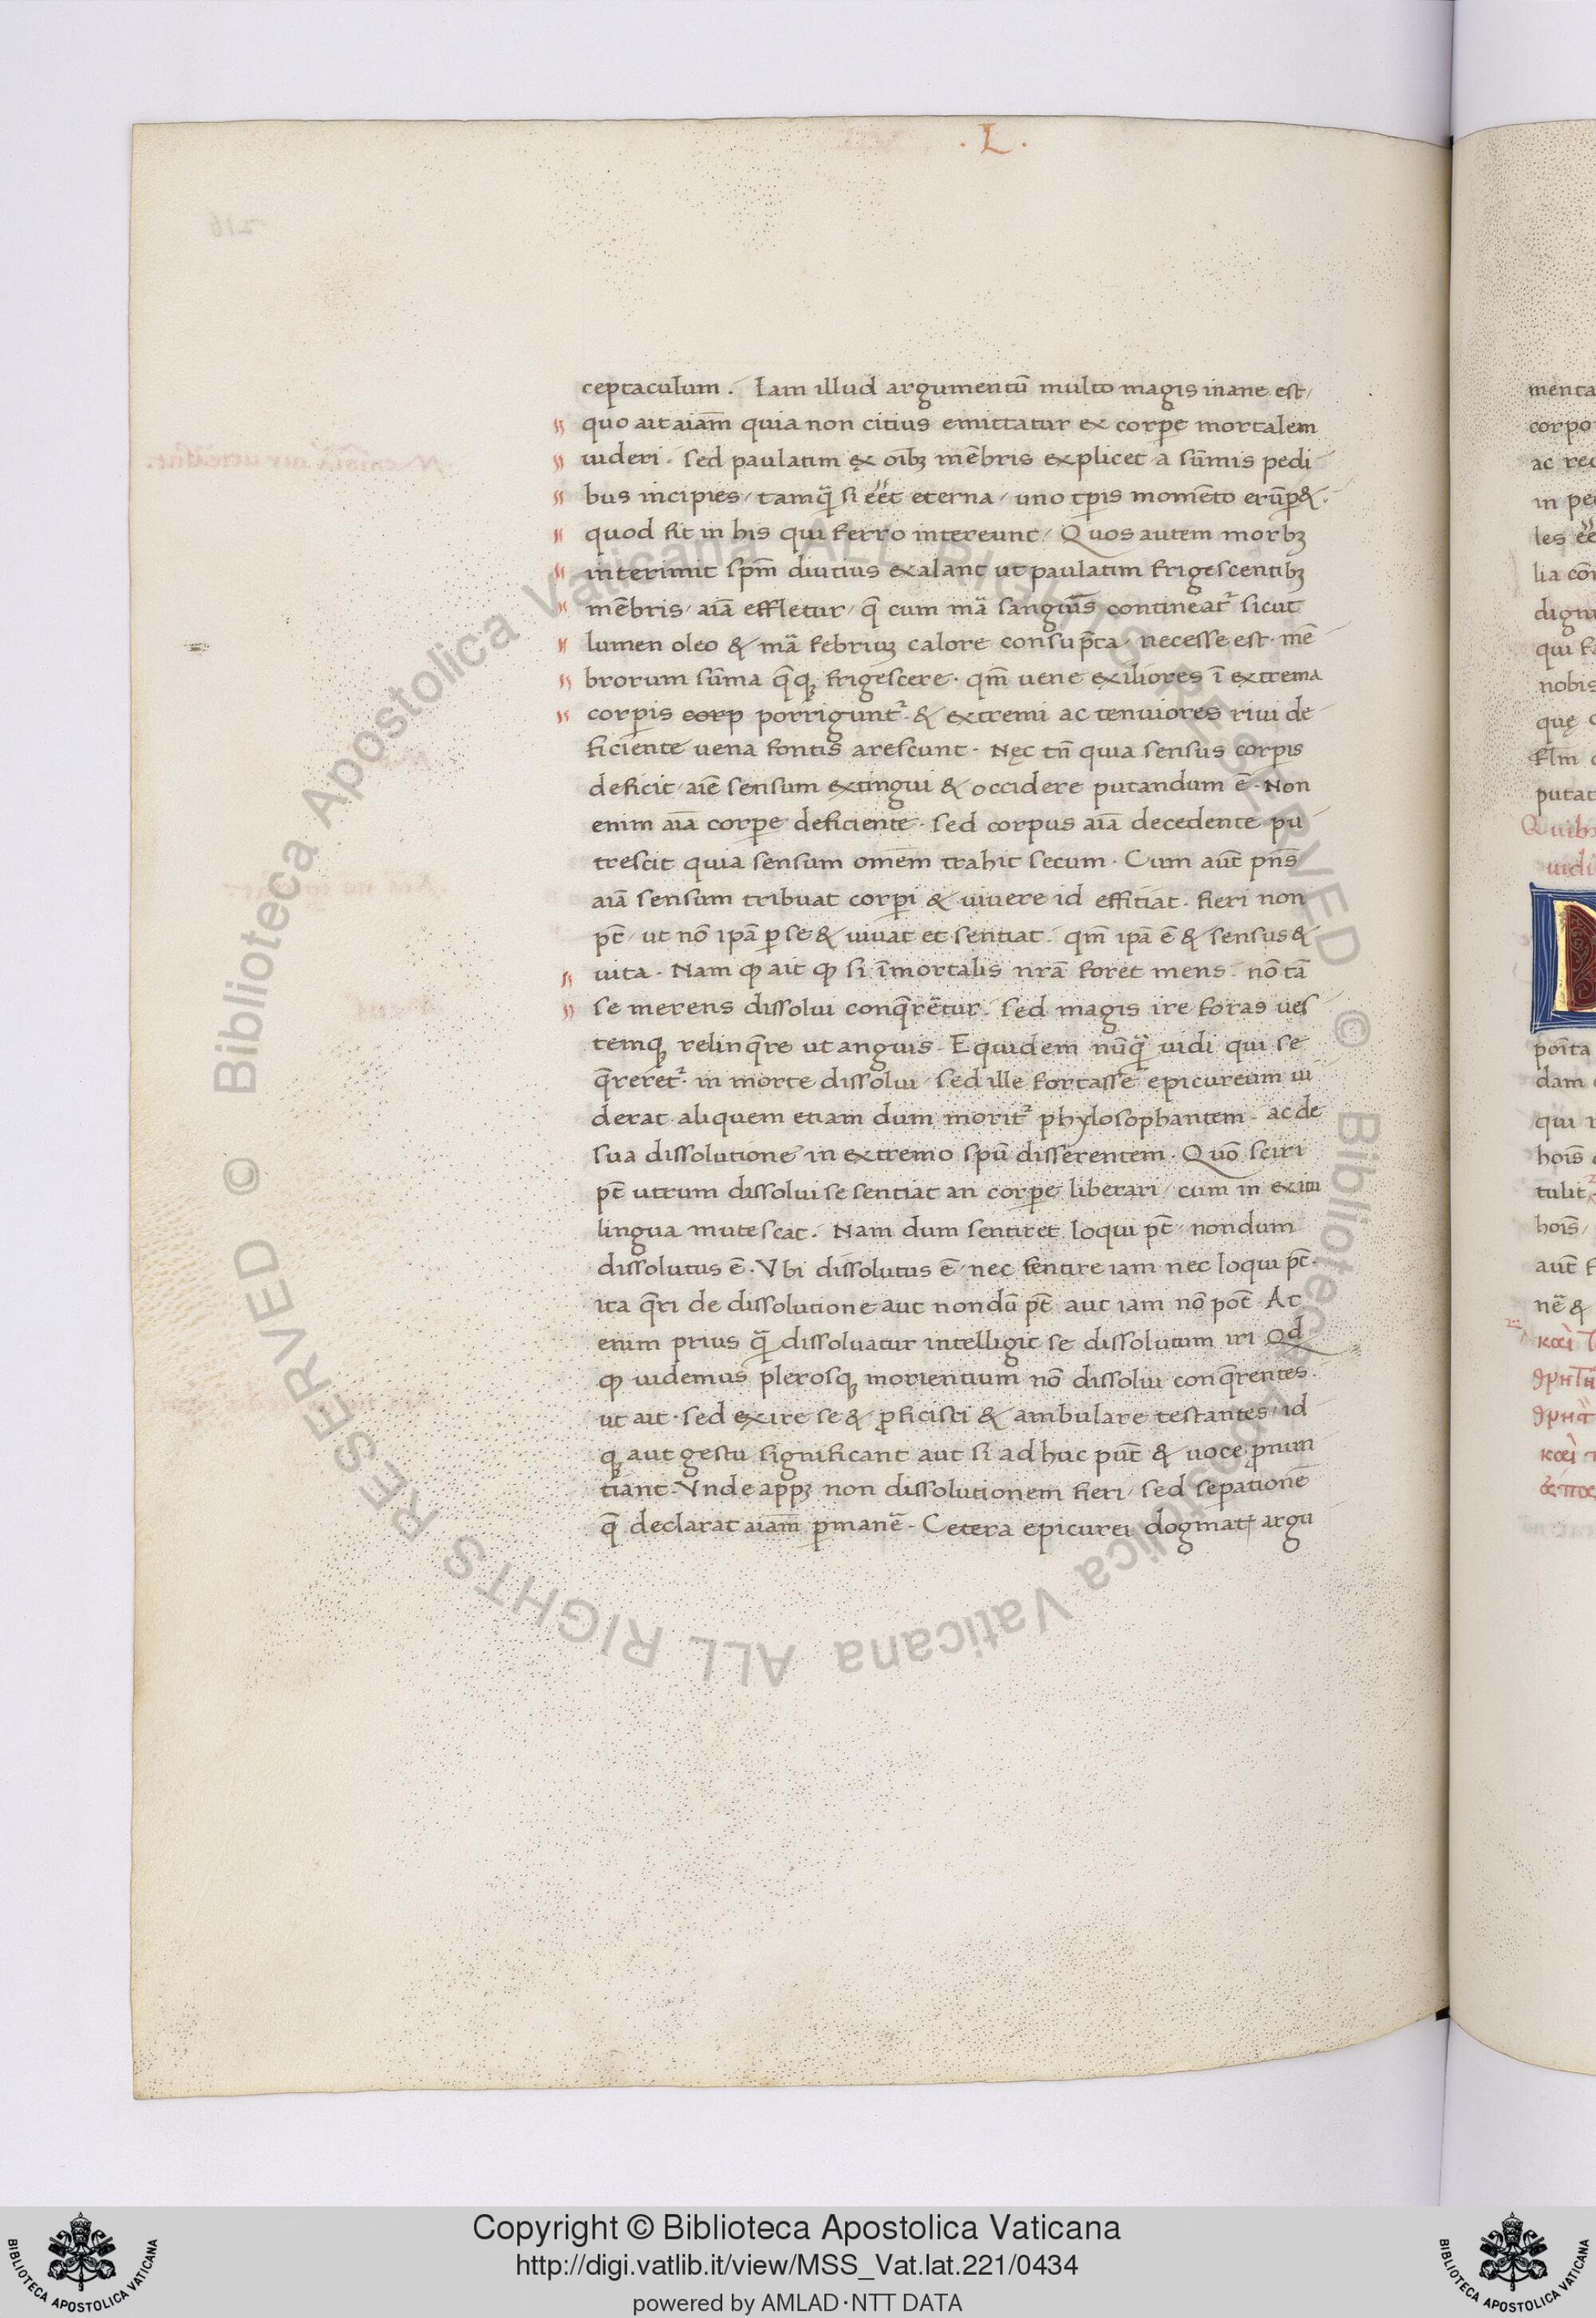 . L .
ceptaculum . Iam illud argumentū multo magis inane est /
quo ait aiam̄ quia non citius emittatur ex corpe mortalem
uideri . sed paulatim ex oībꝫ mēbris explicet a sūmis pedi
bus incipies / tamq̄ si eēt eterna / uno tp̄is momēto erūp& .
quod fit in his qui ferro intereunt / Quos autem morbꝫ
interimit sp̄m diutius exalant ut paulatim frigescentibꝫ
mēbris / aiā effletur / q̄ cum mā sanguīs contineat᷑ sicut
lumen oleo & mā febriuꝫ calore consūpta · necesse est · mē
brorum sūma q̄qꝫ frigescere · qm̄ uene exiliores ī extrema
corpis corp porrigunt᷑ · & extremi ac tenuiores riui de
ficiente uena fontis arescunt · Nęc tn̄ quia sensus corpis
deficit aiē sensum extingui & occidere putandum ē · Non
enim aiā corpe deficiente · sed corpus aiā decedente pu
trescit quia sensum omēm trahit secum · Cum aut̄ pn̄s
aiā sensum tribuat corpi & uiuere id effitiat · fieri non
pt̄ / ut nō ipā p se & uiuat et sentiat · qm̄ ipā ē & sensus &
uita · Nam ꝙ ait ꝙ si īmortalis nrā foret mens · nō tā
se merens dissolui conq̄rētur · sed magis ire foras ues
temqꝫ relinq̄re ut anguis · Equidem nūq̄ uidi qui se
q̄reret᷑ · in morte dissolui · sed ille fortasse epicureum ui
derat aliquem etiam dum morit᷑ phylosophantem · ac de
sua dissolutione in extremo spū disserentem · Quō sciri
pt̄ utrum dissolui se sentiat an corpe liberari / cum in exitu
lingua mutescat . Nam dum sentiret loqui pt̄ / nondum
dissolutus ē · Vbi dissolutus ē / nec sentire iam nec loqui pt̄ ·
ita q̄ri de dissolutione aut nondū pt̄ aut iam nō pot̄ · At
enim prius q̄ dissoluatur intelligit se dissolutum iri Qd
ꝙ uidemus plerosqꝫ morientium nō dissolui conq̄rentes
ut ait · sed exire se & ꝓficisci & ambulare testantes / id
qꝫ aut gestu significant aut si adhuc pūt & uoce pnun
tiant · Vnde appꝫ non dissolutionem fieri / sed sepationē
q̄ declarat aiam̄ pmanē · Cetera epicurei dogmatꝭ argu
menta
corpo
ac rec
les eē
dignu
nobis
quę
flm
putat
Quibꝫ
uidi
dam
qui
hoīs
tulit
hoīs /
nē &
καὶ
Biblioteca Apostolica Vaticana ALL RIGHTS RESERVED ©
Biblioteca Apostolica Vaticana ALL RIGHTS RESERVED ©
Copyright © Biblioteca Apostolica Vaticana
http://digi.vatlib.it/view/MSS_Vat.lat.221/0434
powered by AMLAD·NTT DATA
BIBLIOTECA APOSTOLICA VATICANA
BIBLIOTECA APOSTOLICA VATICANA